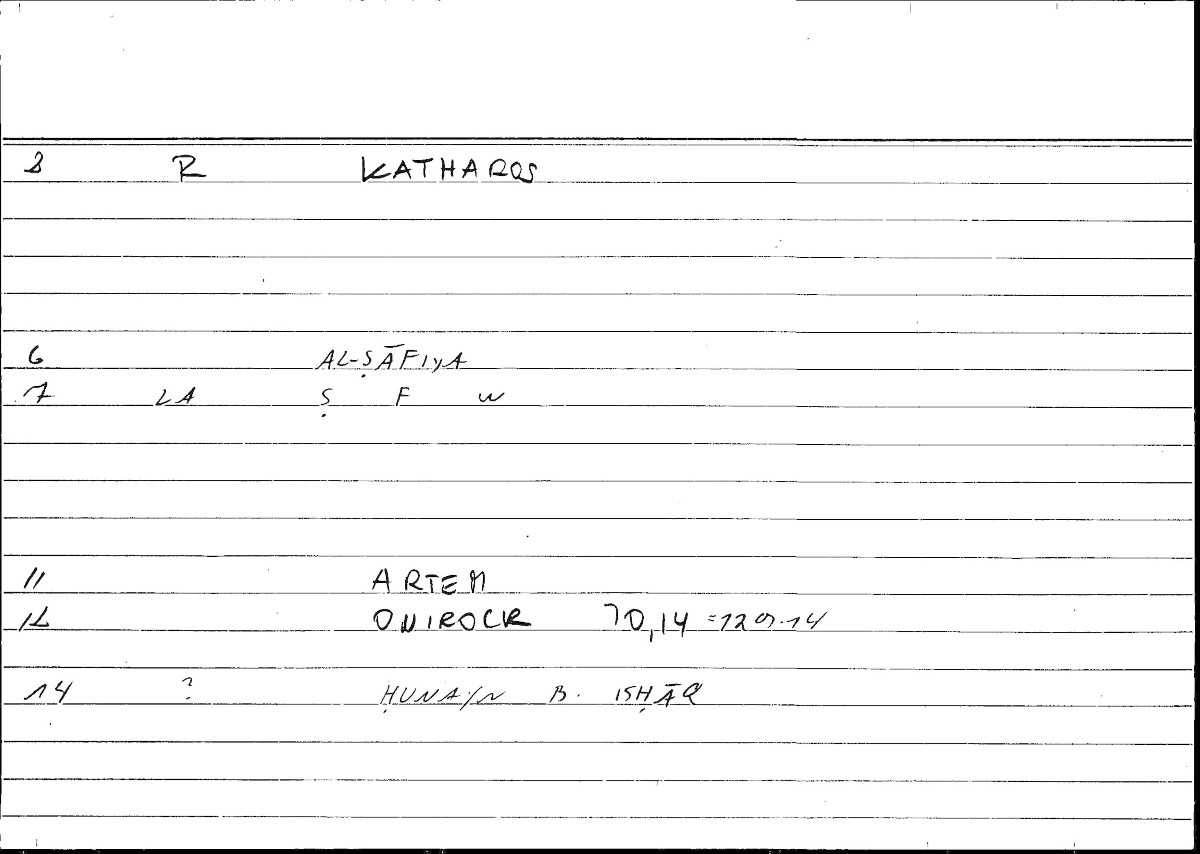 2 R KATHAROS
6 AL-ṢĀFIYA
7 LA Ṣ F W
11 ARTEM
12 ONIROCR 70,14 =129.14
14 ? ḤUNAYN B. ISḤĀQ